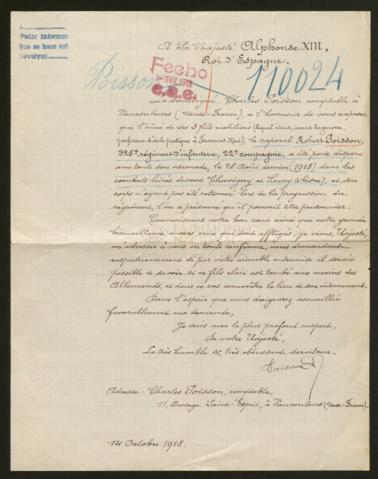 A Sa Majesté Alphonse XIII,
Roi d'Espagne.
Fecho
1918
110024
Le soussigné, Charles Poisson comptable à
Vaucouleurs (Meuse-France), a l'honneur de vous exposer
que l'aîné de ses 3 fils mobilisés
le caporal Robert Poisson,
325e régiment d'infanterie, 22e compagnie, a été porté disparu
avec toute son escouade, le 28 août dernier (1918) dans les
combats livrés devant Chavigny et Leury (Aisne), et son
corps n'ayant pas été retrouvé lors de la progression du
régiment, l'on a présumé qu'il pourrait être prisonnier.
Connaissant votre bon cœur ainsi que votre grande
bienveillance envers ceux qui sont affligés, je viens, Majesté,
m'adresser à vous en toute confiance, vous demandant
respectueusement si par votre aimable entremise il serait
possible de savoir si ce fils chéri est tombé aux mains des
Allemands, et dans ce cas connaître le lieu de son internement.
Dans l'espoir que vous daignerez accueillir
favorablement ma demande,
Je suis avec le plus profond respect,
De votre Majesté,
Le très humble & très obéissant serviteur.
Poisson
Adresse: Charles Poisson, comptable,
11, Saint-Esprit, à Vaucouleurs (Meuse-France).
14 Octobre 1918.